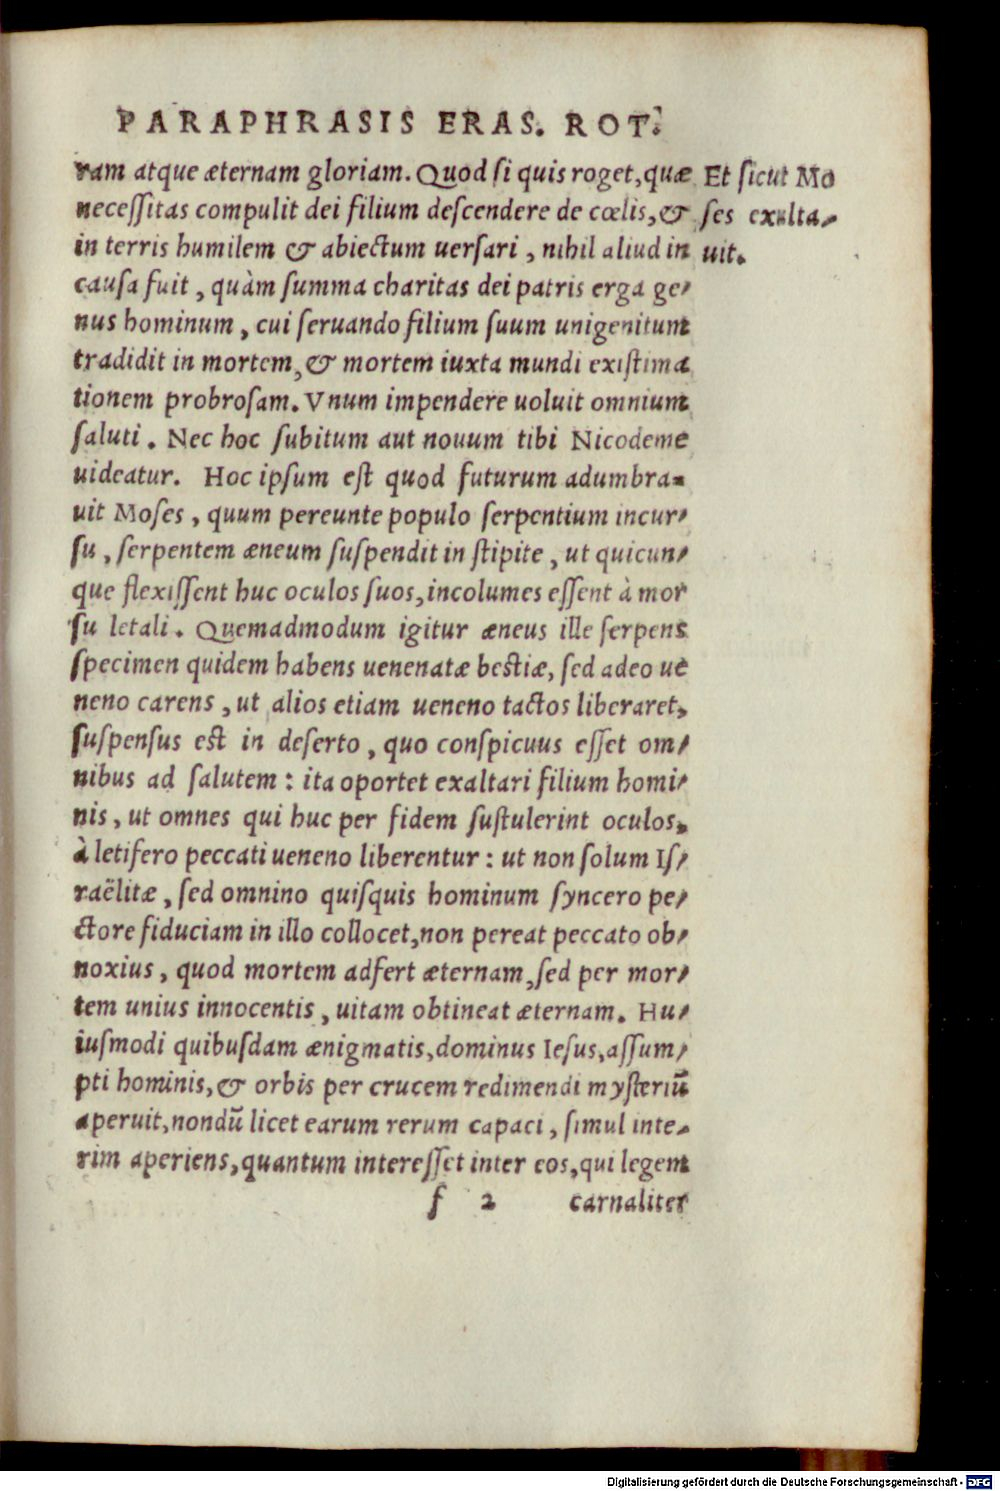 PARAPHRASIS ERAS. ROT.
ram atque æternam gloriam. Quod si quis roget, quæ
necessitas compulit dei filium descendere de cœlis, &
in terris humilem & abiectum uersari, nihil aliud in
causa fuit, quàm summa charitas dei patris erga ge-
nus hominum, cui seruando filium suum unigenitum
tradidit in mortem, & mortem iuxta mundi existima
tionem probrosam. Vnum impendere uoluit omnium
saluti. Nec hoc subitum aut nouum tibi Nicodeme
uideatur. Hoc ipsum est quod futurum adumbra-
uit Moses, quum pereunte populo serpentium incur-
su, serpentem æneum suspendit in stipite, ut quicun-
que flexissent huc oculos suos, incolumes essent à mor
su letali. Quemadmodum igitur æneus ille serpens
specimen quidem habens uenenatæ bestiæ, sed adeo ue
neno carens, ut alios etiam ueneno tactos liberaret,
suspensus est in deserto, quo conspicuus esset om-
nibus ad salutem: ita oportet exaltari filium homi-
nis, ut omnes qui huc per fidem sustulerint oculos,
à letifero peccati ueneno liberentur: ut non solum Is-
raëlitæ, sed omnino quisquis hominum syncero pe-
ctore fiduciam in illo collocet, non pereat peccato ob-
noxius, quod mortem adfert æternam, sed per mor-
tem unius innocentis, uitam obtineat æternam. Hu-
iusmodi quibusdam ænigmatis, dominus Iesus, assum-
pti hominis, & orbis per crucem redimendi mysteriū
aperuit, nondū licet earum rerum capaci, simul inte-
rim aperiens, quantum interesset inter eos, qui legem
f 2 carnaliter
Et sicut Mo
ses exalta-
uit.
Digitalisierung gefördert durch die Deutsche Forschungsgemeinschaft - DFG